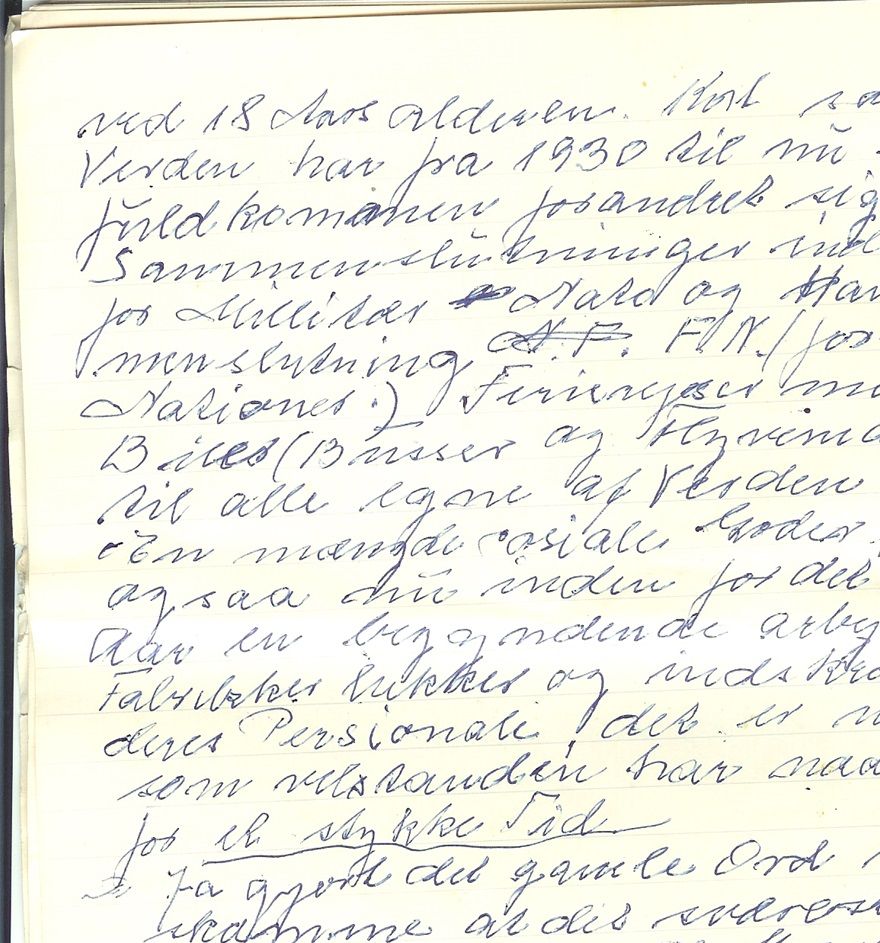 ved 18 Aars alderen. Kort sa
Verden har fra 1930 til nu
fuldkommen forandret sig
Sammenslutninger ind
for Millitær Nato og Han
menslutning N.F. F.N. (for
Nationer.) Ferierejser me
Biler (Busser og Flyvema
til alle egne af Verden
En mængde sosiale Goder
ogsaa nu inden for det
Aar en begyndende arby
Fabrikker lukker og indskræ
deres Personale, det er
som velstanden har naa
for et stykke Tid
Ja gjort det gamle Ord
skamme at det sværest